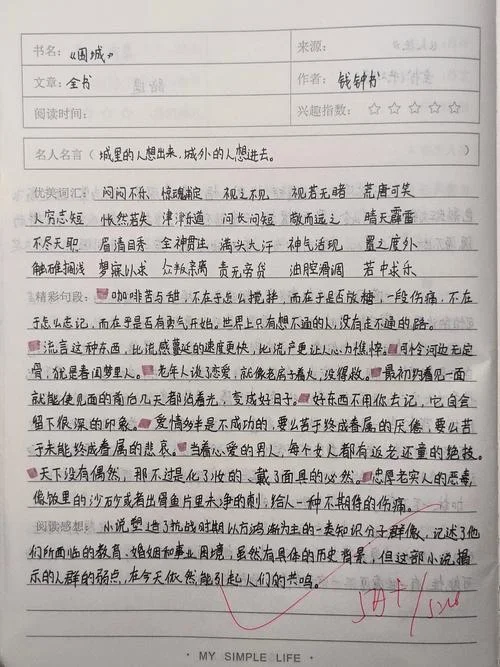 书名：《围城》 来源：
文章：全书 作者：钱钟书
阅读时间： 兴趣指数：☆☆☆☆☆
名人名言（城里的人想出来，城外的人想进去。 ）
优美词汇： 闷闷不乐 惊魂甫定 视之不见 视若无睹 荒唐可笑
人穷志短 怅然若失 津津乐道 问长问短 敬而远之 晴天霹雳
不尽天职 眉清目秀 全神贯注 满头大汗 神气活现 置之度外
触礁搁浅 梦寐以求 众叛亲离 责无旁贷 油腔滑调 苦中求乐
精彩句段： 咖啡苦与甜，不在于怎么搅拌，而在于是否放糖，一段伤痛，不在
于怎么忘记，而在于是否有勇气开始。世界上只有想不通的人，没有走不通的路。
流言这种东西，比流感蔓延的速度更快，比流产更让人心力憔悴。可怜河边无定
骨，犹是春闺梦里人。老年人谈了恋爱，就像老房子着火，没得救。最初约看见一面
就能使见面的前后几天都沾着光，变成好日子。好东西不用你去记，它自会
留下很深的印象。爱情多半是不成功的，要么苦于终成眷属的厌倦，要么苦
于未能终成眷属的悲哀。当着心爱的男人，每个女人都有返老还童的绝技。
天下没有偶然，那不过是化了妆的、戴了面具的必然。忠厚老实人的恶毒，
像饭里的沙石砂或者出骨鱼片里未净的刺，给人一种不期待的伤痛。
阅读感想：小说塑造了抗战时期以方鸿渐为主的一类知识分子群像，记述了他
们所面临的教育、婚姻和事业困境，虽然有具体的历史背景，但这部小说揭
示的人群的弱点，在今天依然能引起人们的共鸣。
5A+ /
· MY SIMPLE LIFE ·